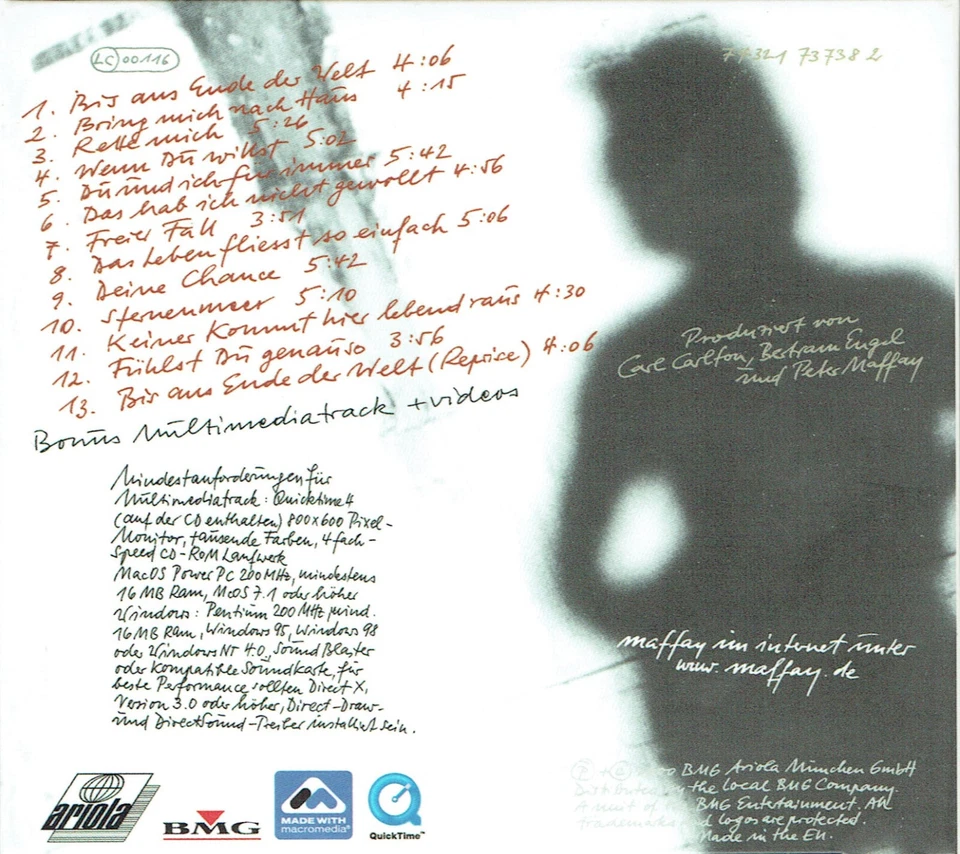 LC 00116
77321 73738 2
1. Bis ans Ende der Welt 4:06
2. Bring mich nach Haus 4:15
3. Rette mich 5:26
4. Wenn Du willst 5:02
5. Du und ich für immer 5:42
6. Das hab ich nicht gewollt 4:56
7. Freier Fall 3:51
8. Das Leben fliesst so einfach 5:06
9. Deine Chance 5:42
10. Sternenmeer 5:10
11. Keiner kommt hier lebend raus 4:30
12. Fühlst Du genauso 3:56
13. Bis ans Ende der Welt (Reprise) 4:06
Bonus Multimediatrack + videos
Produziert von
Carl Carlton, Bertram Engel
und Peter Maffay
Mindestanforderungen für
Multimediatrack: Quicktime 4
(auf der CD enthalten) 800x600 Pixel-
Monitor, tausende Farben, 4fach-
Speed CD-ROM Laufwerk
MacOS PowerPC 200MHz, mindestens
16 MB Ram, McOS 7.1 oder höher
Windows: Pentium 200 MHz mind.
16MB Ram, Windows 95, Windows 98
oder Windows NT 4.0, Sound Blaster
oder kompatible Soundkarte, für
beste Performance sollten Direct X,
Version 3.0 oder höher, Direct-Draw-
und DirectSound-Treiber installiert sein.
maffay im internet unter
www.maffay.de
ariola
BMG
MADE WITH
macromedia®
QuickTime™
℗ + © 00 BMG Ariola München GmbH
Distributed by the local BMG Company.
A unit of BMG Entertainment. All
trademarks and logos are protected.
Made in the EU.